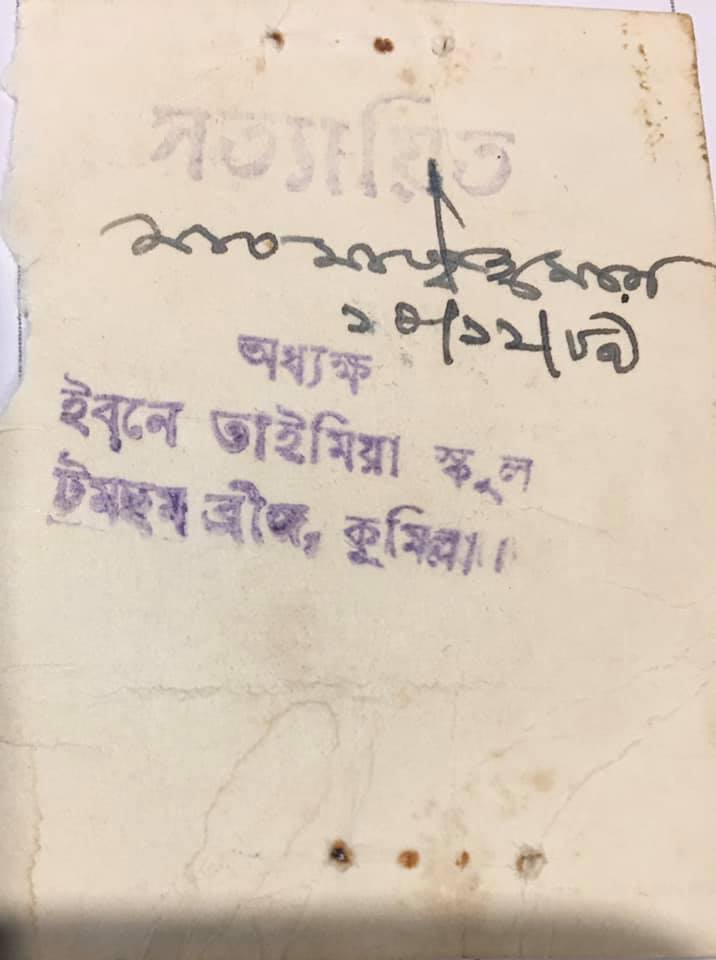 সত্যায়িত
অধ্যক্ষ
ইবনে তাইমিয়া স্কুল
টমছম ব্রীজ, কুমিল্লা।